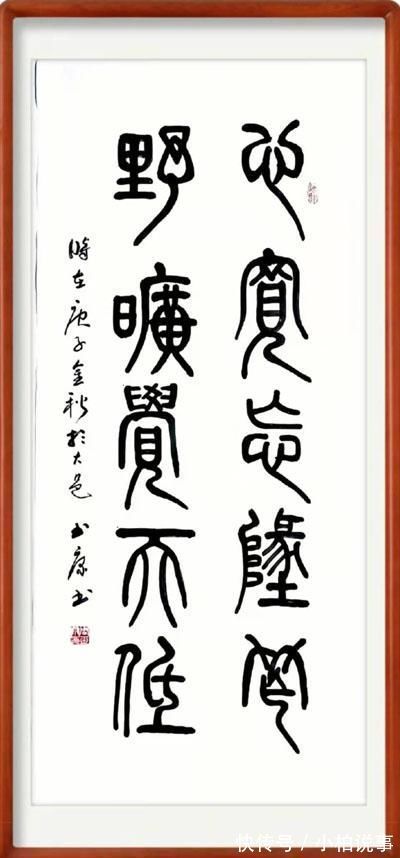 心寬忘墬窄
野曠覺天低
時在庚子金秋於大邑 玉康书
快传号 / 小柏说事